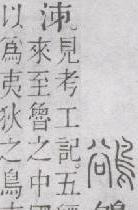 泲見考工記。五
來至魯之中
以爲夷狄之鳥